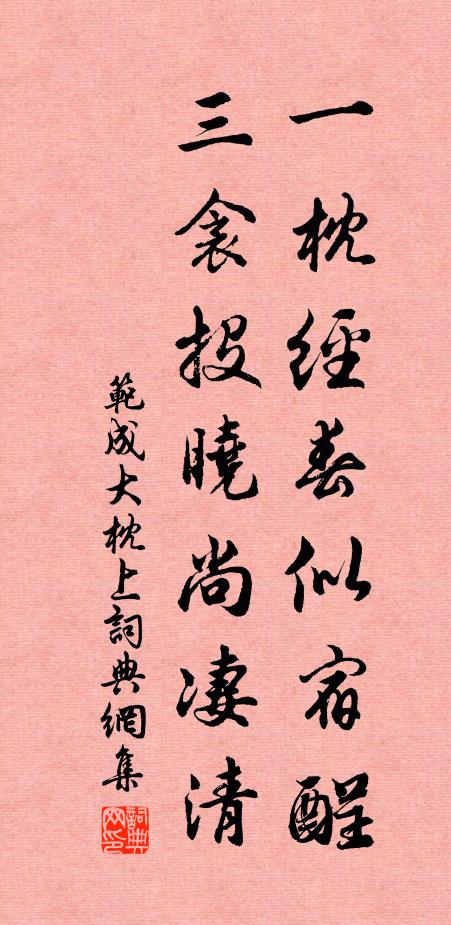 一枕經春似宿酲
三衾投曉尚凄清
範成大枕上詞典網集
詞典網印